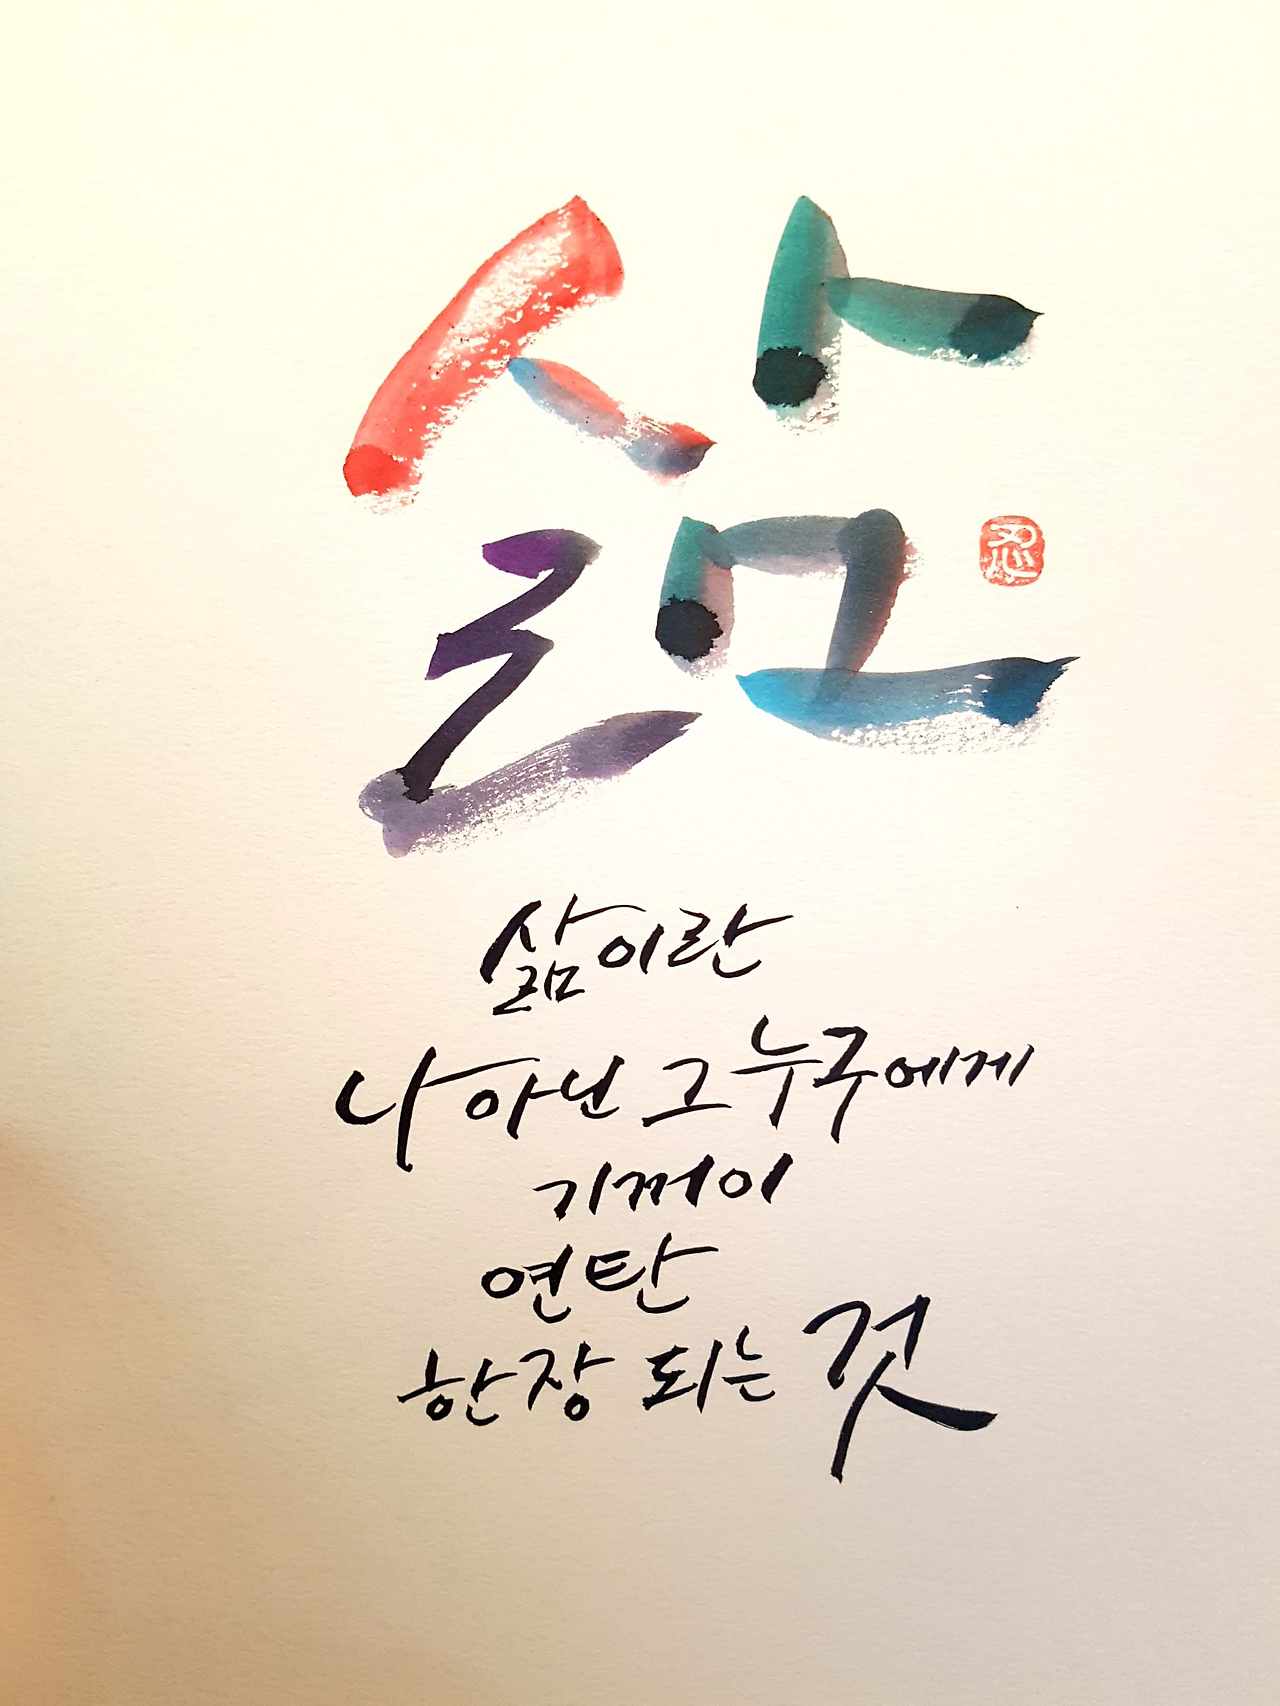 삶
삶이란
나 아닌 그 누구에게
기꺼이
연탄
한장 되는 것